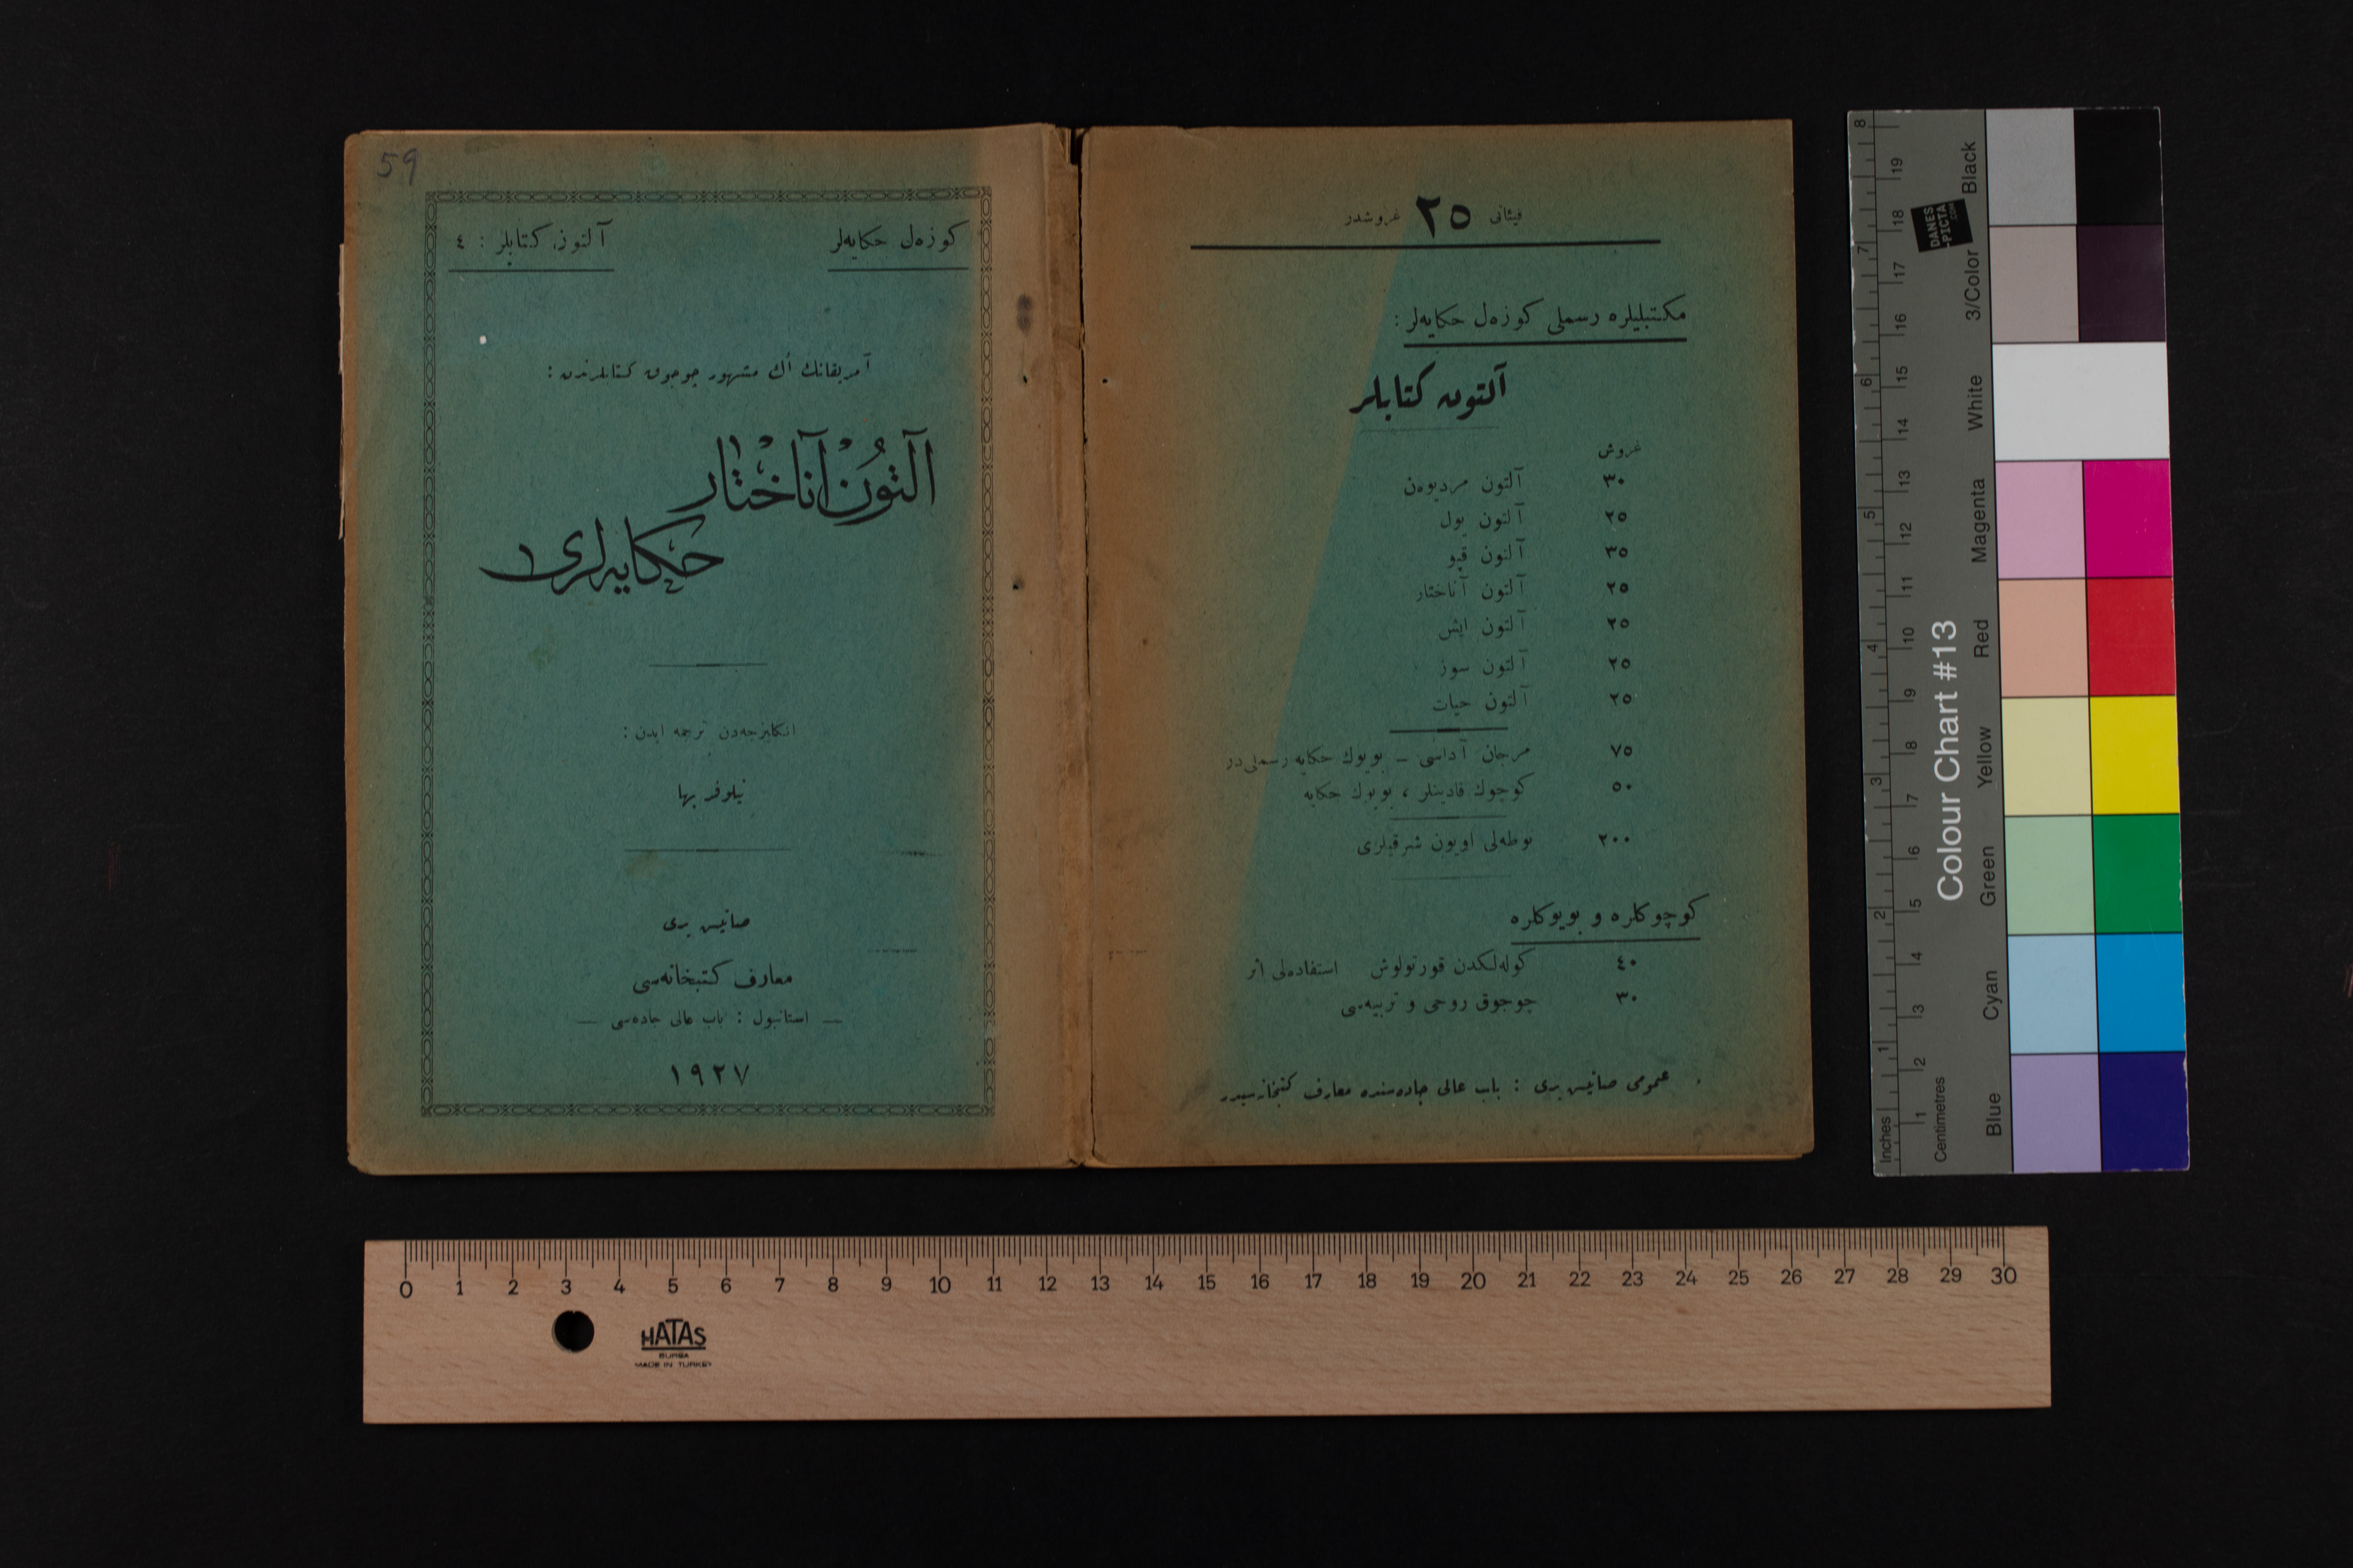 59
كوزه‌ل حكایه‌لر
آلتون كتابلر : ٤
آمریقانك أك مشهور چوجوق كتابلرندن :
آلتون آناختار
حكایه‌لری
انكلیزجه‌دن ترجمه ایدن :
نیلوفر بها
صاتیش یری
معارف كتبخانه‌سی
— استانبول : باب عالی جاده‌سی —
١٩٢٧
فیئاتی ٢٥ غروشدر
مكتبلیلره رسملی كوزه‌ل حكایه‌لر :
آلتون كتابلر
غروش
٣٠ آلتون مردیوه‌ن
٢٥ آلتون یول
٣٥ آلتون قپو
٢٥ آلتون آناختار
٢٥ آلتون ایش
٢٥ آلتون سوز
٢٥ آلتون حیات
٧٥ مرجان آداسی — بویوك حكایه رسملی‌در
٥٠ كوچوك قادینلر ، بویوك حكایه
٢٠٠ نوطه‌لی اویون شرقیلری
كوچوكلره و بویوكلره
٤٠ كوله‌لكدن قورتولوش استفاده‌لی اثر
٣٠ چوجوق روحی و تربیه‌سی
عمومی صاتیش یری : باب عالی جاده‌سنده معارف كتبخانه‌سیدر
Inches
1 2 3 4 5 6 7 8
Centimetres
1 2 3 4 5 6 7 8 9 10 11 12 13 14 15 16 17 18 19
Colour Chart #13
Blue Cyan Green Yellow Red Magenta White 3/Color Black
DANES
-PICTA
.COM
0 1 2 3 4 5 6 7 8 9 10 11 12 13 14 15 16 17 18 19 20 21 22 23 24 25 26 27 28 29 30
HATAS
BURSA
MADE IN TURKEY